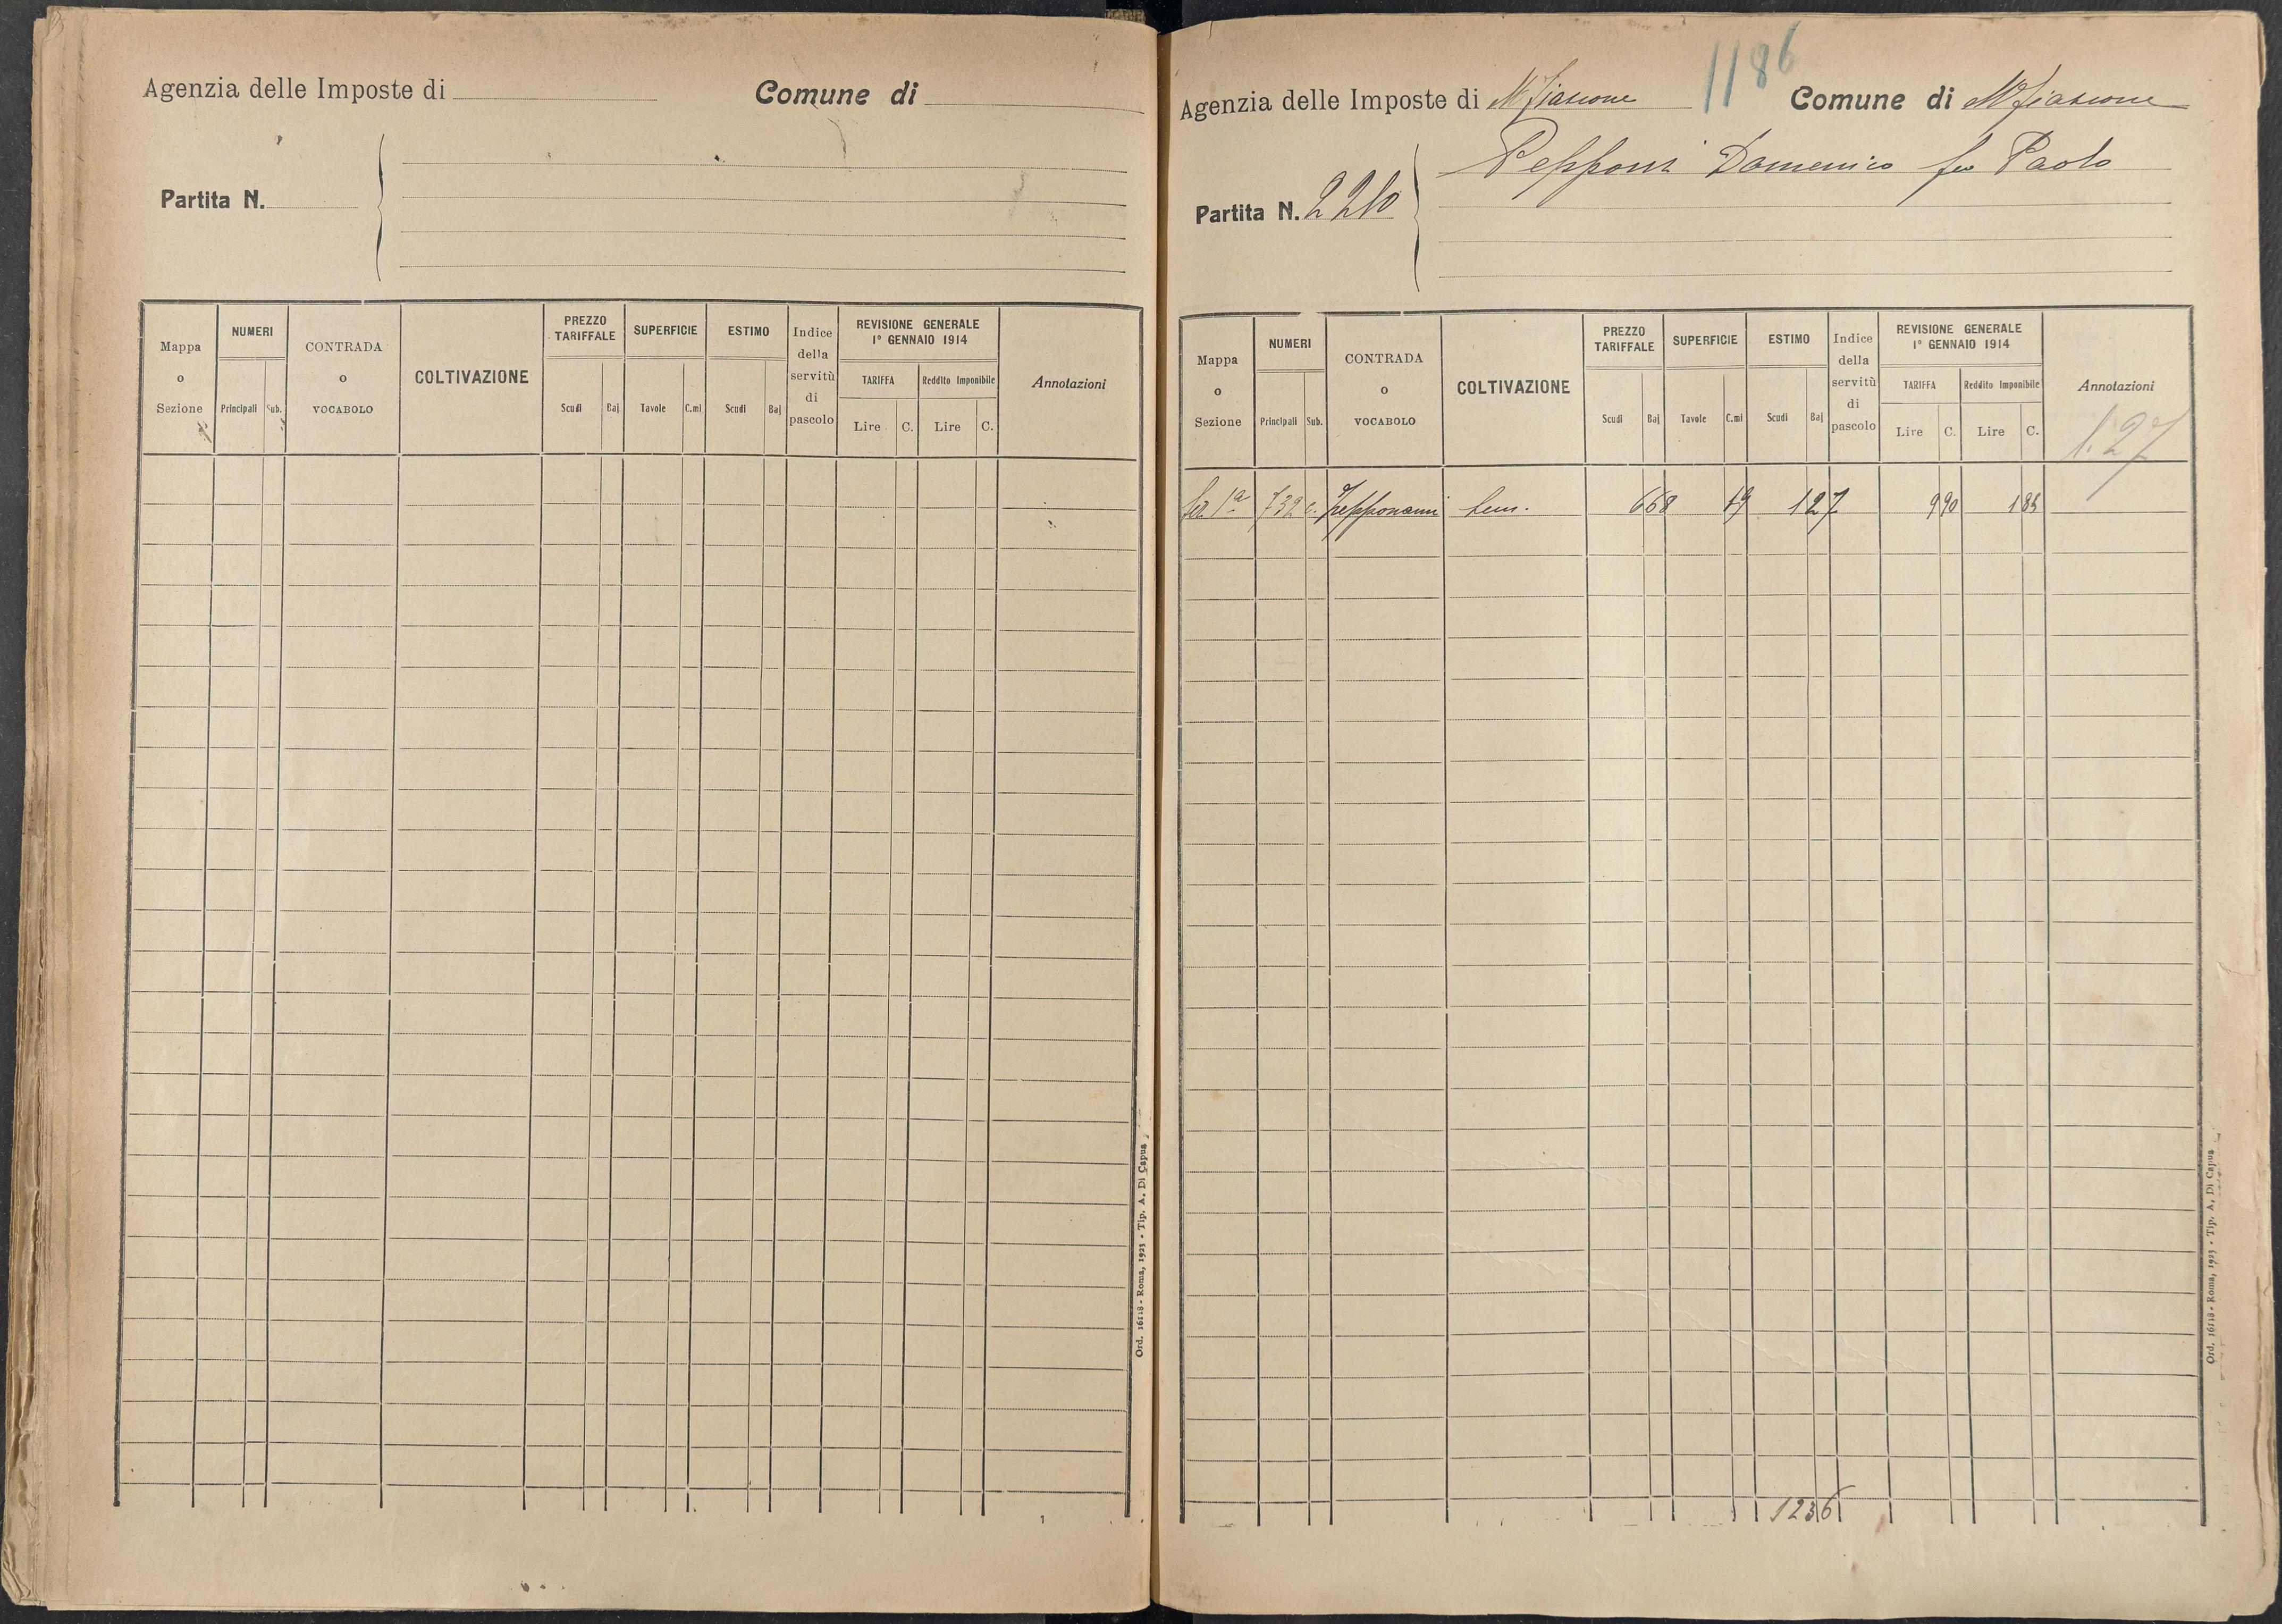 Agenzia delle Imposte di
Comune di
Partita N.
Mappa o Sezione
NUMERI
Principali Sub.
CONTRADA o VOCABOLO
COLTIVAZIONE
PREZZO TARIFFALE
Scudi Baj
SUPERFICIE
Tavole C.mi
ESTIMO
Scudi Baj
Indice della servitù di pascolo
REVISIONE GENERALE
1° GENNAIO 1914
TARIFFA
Lire C.
Reddito Imponibile
Lire C.
Annotazioni
Ord. 16118 - Roma, 1923 - Tip. A. Di Capua
1186
Agenzia delle Imposte di M Fiascone
Comune di M Fiascone
Pepponi Domenico fu Paolo
Partita N. 2210
Mappa o Sezione
NUMERI
Principali Sub.
CONTRADA o VOCABOLO
COLTIVAZIONE
PREZZO TARIFFALE
Scudi Baj
SUPERFICIE
Tavole C.mi
ESTIMO
Scudi Baj
Indice della servitù di pascolo
REVISIONE GENERALE
1° GENNAIO 1914
TARIFFA
Lire C.
Reddito Imponibile
Lire C.
Annotazioni
1.27
1ª 732 Sem. 6 68 19 1 27 9 90 1 88
1236
Ord. 16118 - Roma, 1923 - Tip. A. Di Capua